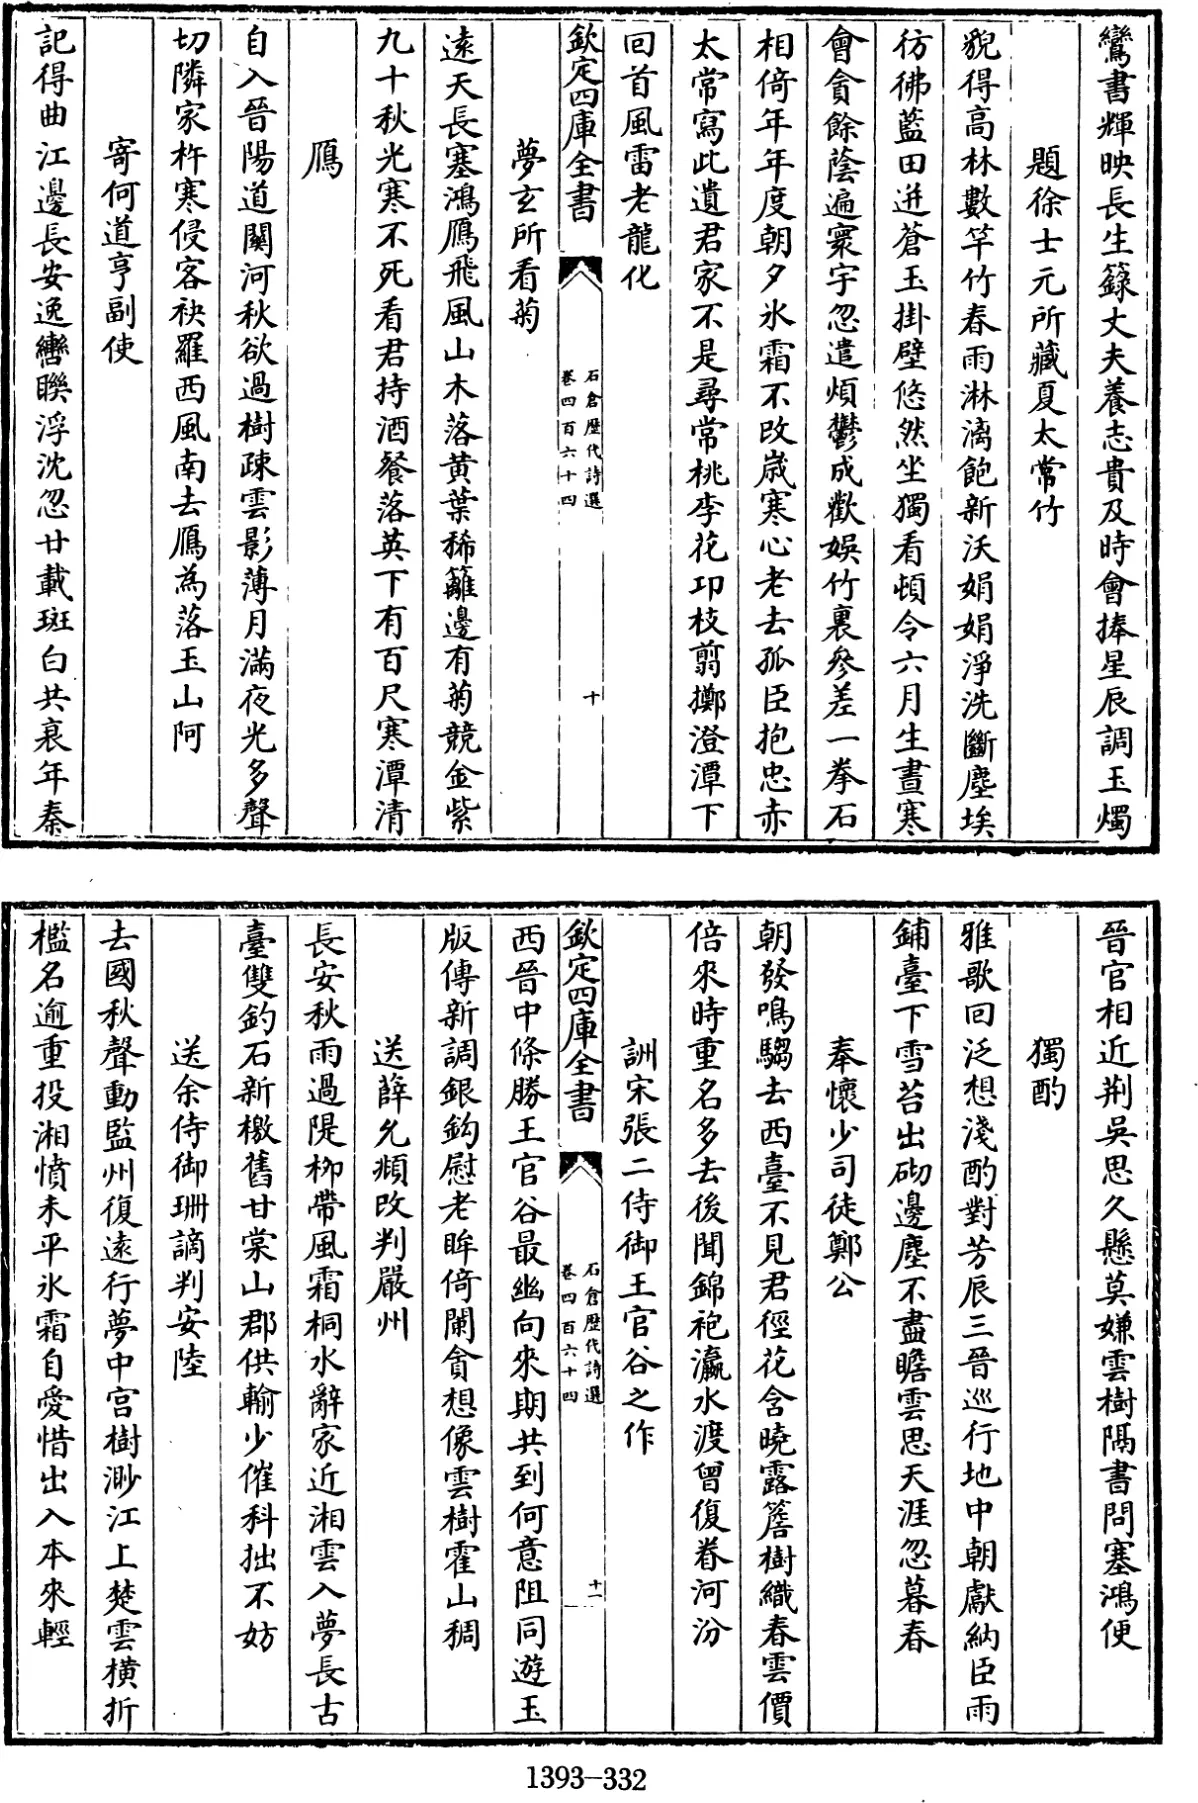 鸞書輝映長生籙丈夫養志貴及時會捧星辰調玉燭
題徐士元所藏夏太常竹
貌得高林數竿竹春雨淋漓飽新沃娟娟淨洗斷塵埃
彷彿藍田迸蒼玉掛壁悠然坐獨看頓令六月生晝寒
會貪餘蔭遍寰宇忽遣煩鬱成歡娛竹裏參差一拳石
相倚年年度朝夕氷霜不改嵗寒心老去孤臣抱忠赤
太常寫此遺君家不是尋常桃李花卭枝翦擲澄潭下
回首風雷老龍化
欽定四庫全書
石倉歷代詩選
卷四百六十四
十
夢玄所看菊
遠天長塞鴻鴈飛風山木落黄葉稀籬邊有菊競金紫
九十秋光寒不死看君持酒餐落英下有百尺寒潭清
鴈
自入晉陽道闗河秋欲過樹疎雲影薄月滿夜光多聲
切隣家杵寒侵客袂羅西風南去鴈為落玉山阿
寄何道亨副使
記得曲江邊長安逸轡聨浮沈忽廿載斑白共衰年秦
晉官相近荆吳思久懸莫嫌雲樹隔書問塞鴻便
獨酌
雅歌回泛想淺酌對芳辰三晉巡行地中朝獻納臣雨
鋪臺下雪苔出砌邊塵不盡瞻雲思天涯忽暮春
奉懷少司徒鄭公
朝發鳴騶去西臺不見君徑花含曉露簷樹織春雲價
倍來時重名多去後聞錦袍瀛水渡曾復眷河汾
詶宋張二侍御王官谷之作
欽定四庫全書
石倉歷代詩選
卷四百六十四
十一
西晉中條勝王官谷最幽向來期共到何意阻同遊玉
版傳新調銀鈎慰老眸倚闌貪想像雲樹霍山稠
送薛允頫改判嚴州
長安秋雨過隄柳帶風霜桐水辭家近湘雲入夢長古
臺雙釣石新檄舊甘棠山郡供輸少催科拙不妨
送余侍御珊謫判安陸
去國秋聲動監州復遠行夢中宫樹渺江上楚雲橫折
檻名逾重投湘憤未平氷霜自愛惜出入本來輕
1393-332